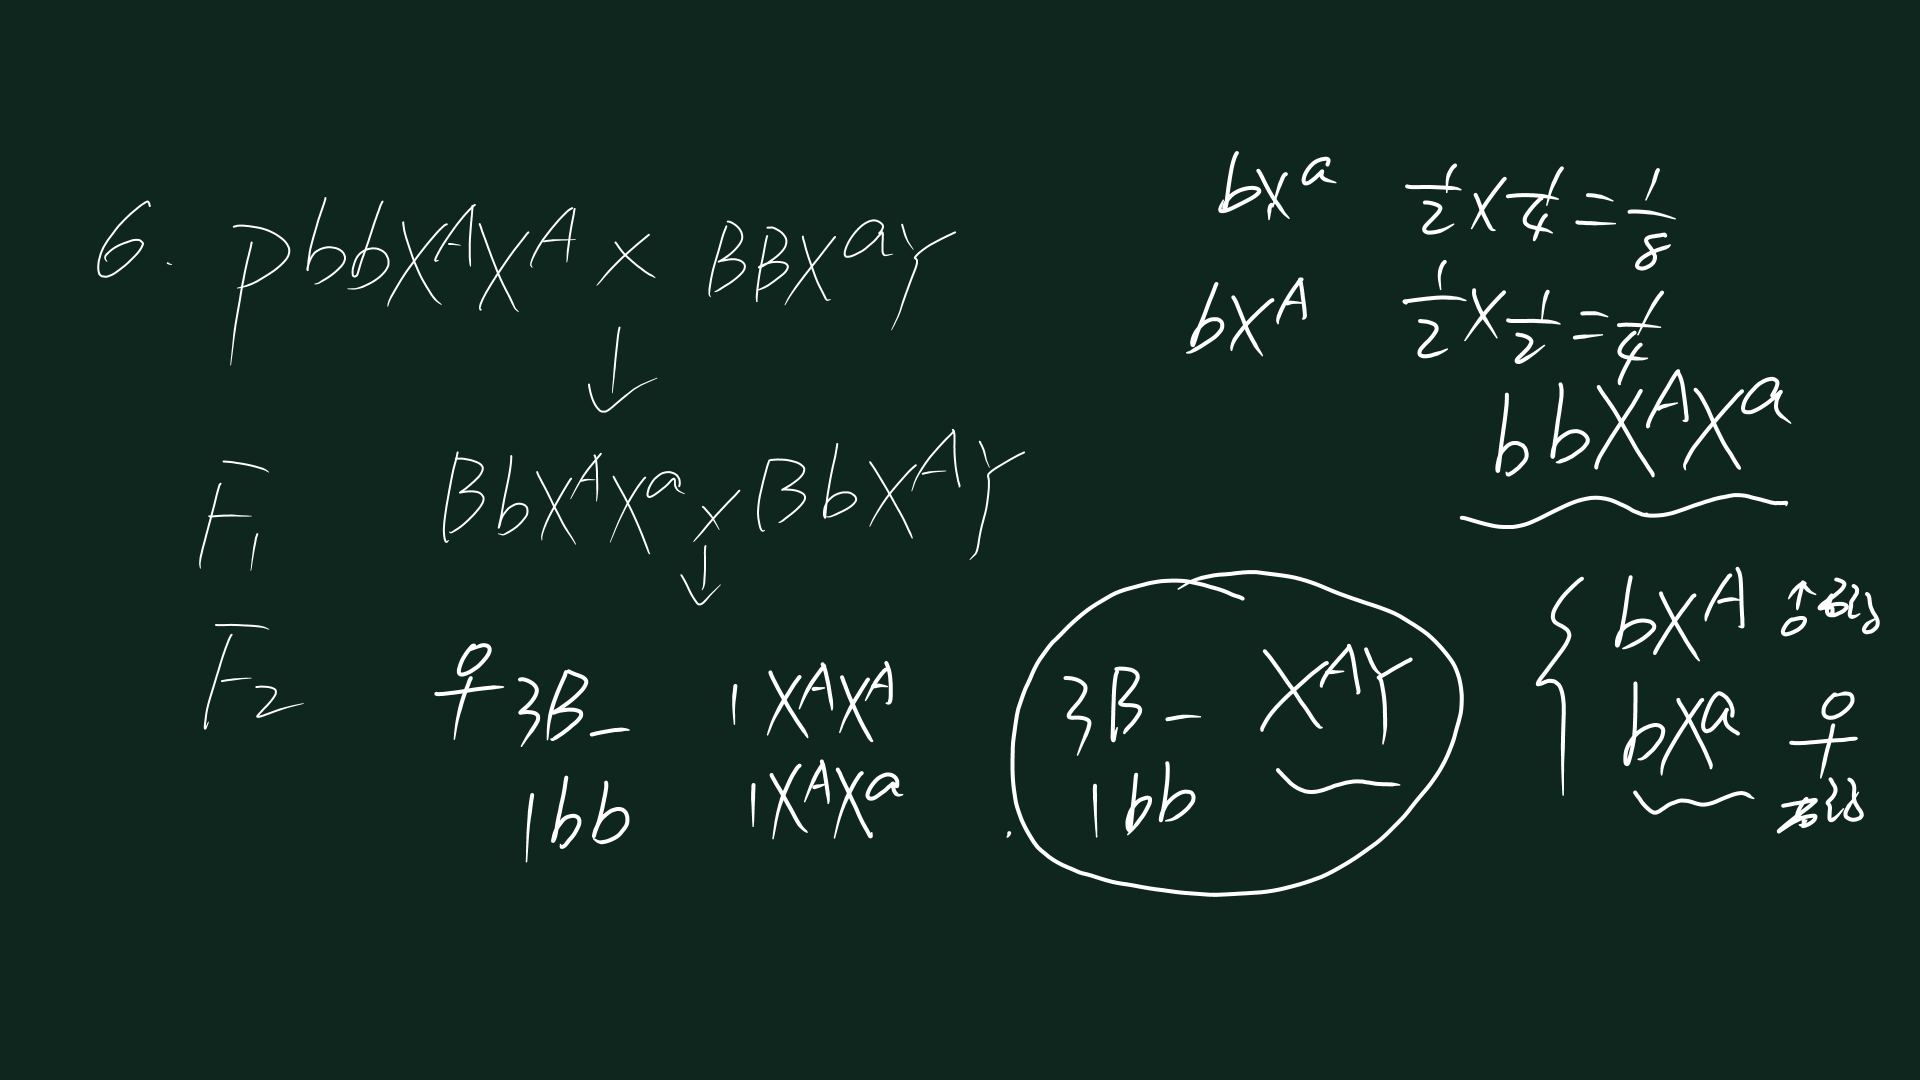 6. P bbXᴬXᴬ × BBXᵃY
↓
F₁ BbXᴬXᵃ × BbXᴬY
↓
F₂ ♀ 3B_ 1XᴬXᴬ
1bb 1XᴬXᵃ
3B_ XᴬY
1bb
bXᵃ 1/2 × 1/4 = 1/8
bXᴬ 1/2 × 1/2 = 1/4
bbXᴬXᵃ
bXᴬ
bXᵃ ♀